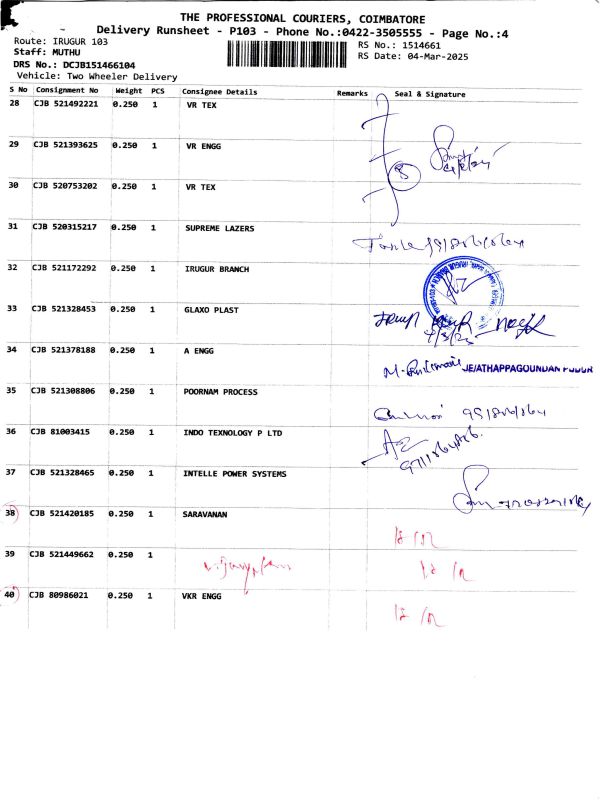 THE PROFESSIONAL COURIERS, COIMBATORE
Delivery Runsheet - P103 - Phone No.:0422-3505555 - Page No.:4
Route: IRUGUR 103
RS No.: 1514661
Staff: MUTHU
RS Date: 04-Mar-2025
DRS No.: DCJB151466104
Vehicle: Two Wheeler Delivery
S No Consignment No Weight PCS Consignee Details Remarks Seal & Signature
28 CJB 521492221 0.250 1 VR TEX
29 CJB 521393625 0.250 1 VR ENGG
30 CJB 520753202 0.250 1 VR TEX
31 CJB 520315217 0.250 1 SUPREME LAZERS
32 CJB 521172292 0.250 1 IRUGUR BRANCH
33 CJB 521328453 0.250 1 GLAXO PLAST
34 CJB 521378188 0.250 1 A ENGG
JE/ATHAPPAGOUNDAN PUDUR
35 CJB 521308806 0.250 1 POORNAM PROCESS
36 CJB 81003415 0.250 1 INDO TEXNOLOGY P LTD
37 CJB 521328465 0.250 1 INTELLE POWER SYSTEMS
38 CJB 521420185 0.250 1 SARAVANAN
39 CJB 521449662 0.250 1
40 CJB 80986021 0.250 1 VKR ENGG